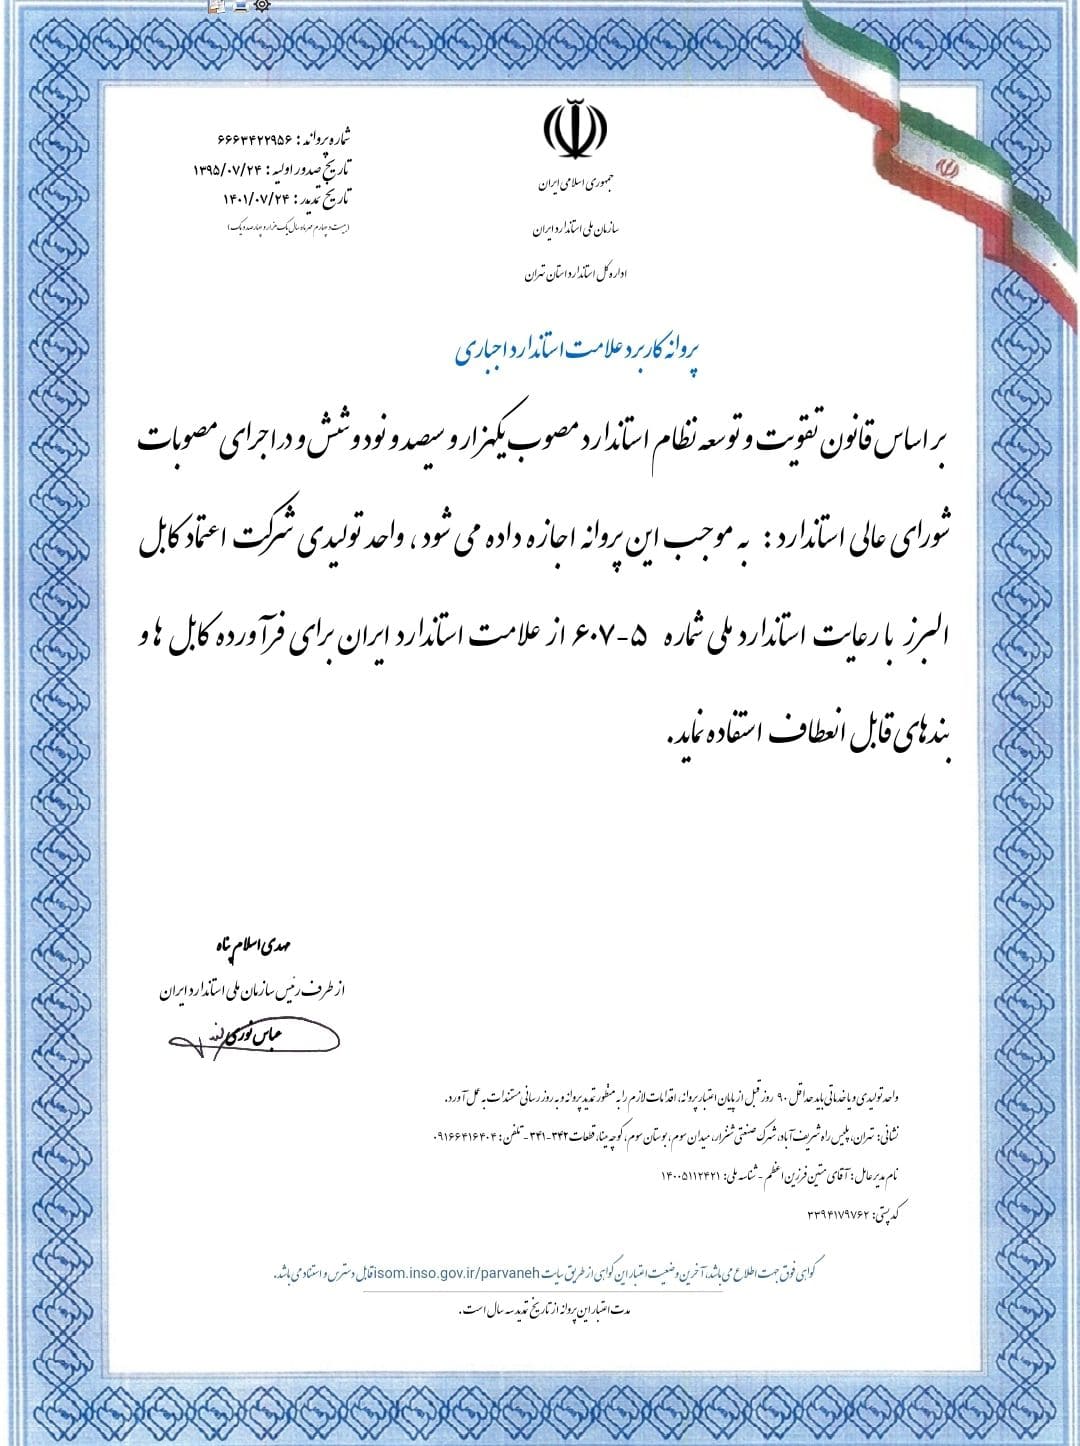 شماره پروانه: ۶۶۶۳۴۲۲۹۵۶
تاریخ صدور اولیه: ۱۳۹۵/۰۷/۲۴
تاریخ تمدید: ۱۴۰۱/۰۷/۲۴
(بیست و چهارم مهر ماه سال یک هزار و چهارصد و یک)
جمهوری اسلامی ایران
سازمان ملی استاندارد ایران
اداره کل استاندارد استان تهران
پروانه کاربرد علامت استاندارد اجباری
بر اساس قانون تقویت و توسعه نظام استاندارد مصوب یکهزار و سیصد و نود و شش و در اجرای مصوبات
شورای عالی استاندارد: به موجب این پروانه اجازه داده می شود، واحد تولیدی شرکت اعتماد کابل
البرز با رعایت استاندارد ملی شماره ۵-۶۰۷ از علامت استاندارد ایران برای فرآورده کابل ها و
بندهای قابل انعطاف استفاده نماید.
مهدی اسلام پناه
از طرف رئیس سازمان ملی استاندارد ایران
عباس نوری
واحد تولیدی و یا خدماتی باید حداقل ۹۰ روز قبل از پایان اعتبار پروانه، اقدامات لازم را به منظور تمدید پروانه و به روز رسانی مستندات به عمل آورد.
نشانی: تهران، پلیس راه شریف آباد، شهرک صنعتی شنزار، میدان سوم، بوستان سوم، کوچه مینا، قطعات ۳۴۲-۳۴۱ - تلفن: ۰۹۱۶۶۴۱۶۴۰۴
نام مدیر عامل: آقای متین فرزین اعظم - شناسه ملی: ۱۴۰۰۵۱۱۲۴۲۱
کد پستی: ۳۳۹۴۱۷۹۷۶۲
گواهی فوق جهت اطلاع می باشد، آخرین وضعیت اعتبار این گواهی از طریق سایت isom.inso.gov.ir/parvaneh قابل دسترس و استناد می باشد.
مدت اعتبار این پروانه از تاریخ تمدید سه سال است.